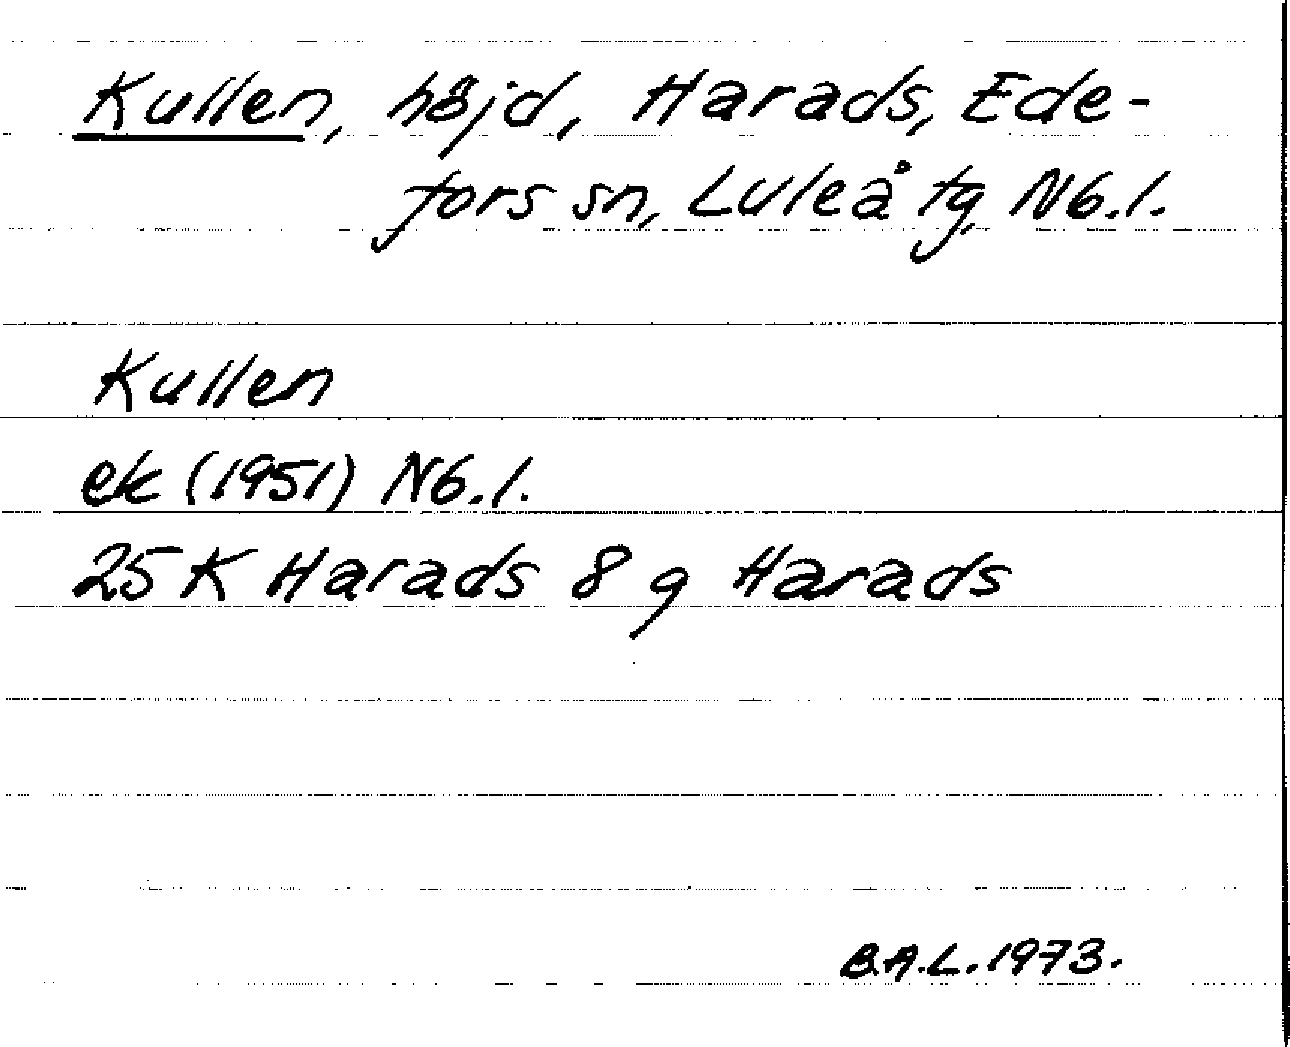 Kullen, höjd, Harads, Ede-
fors sn, Luleå tg, Nb.l.
Kullen
ek (1951) Nb.l.
25 K Harads 8 g Harads
B.A.L. 1973.